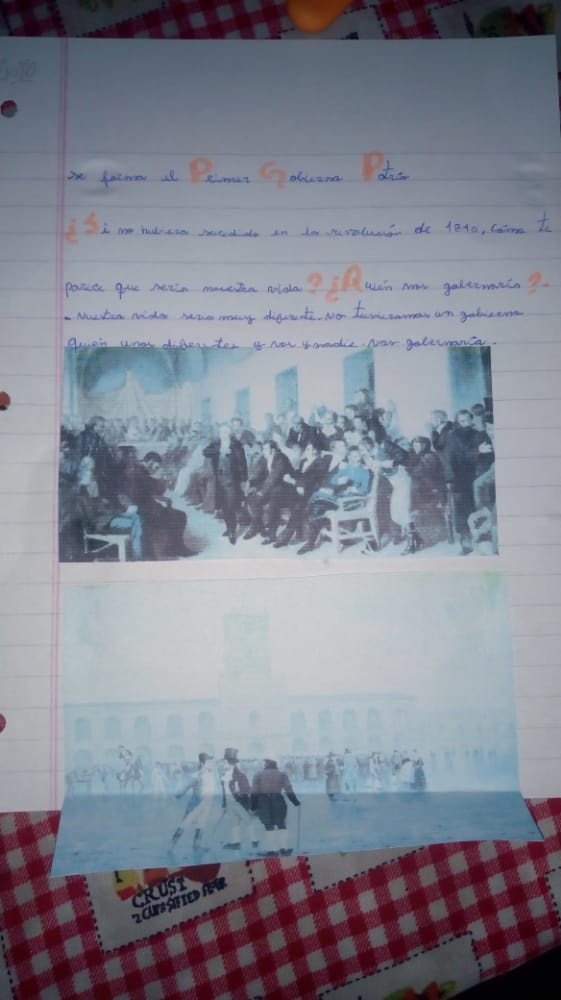 se forma el Primer Gobierno Patrio
¿Si no hubiera sucedido en la revolución de 1810, Cómo te
parece que sería nuestra vida? ¿Quién nos gobernaría?-
- Nuestra vida seria muy diferente. No tuvieramos un gobierno
quién unos diferentes y nos y nadie. Nos gobernaría.
CRUST
CLASSIFIED FLOUR